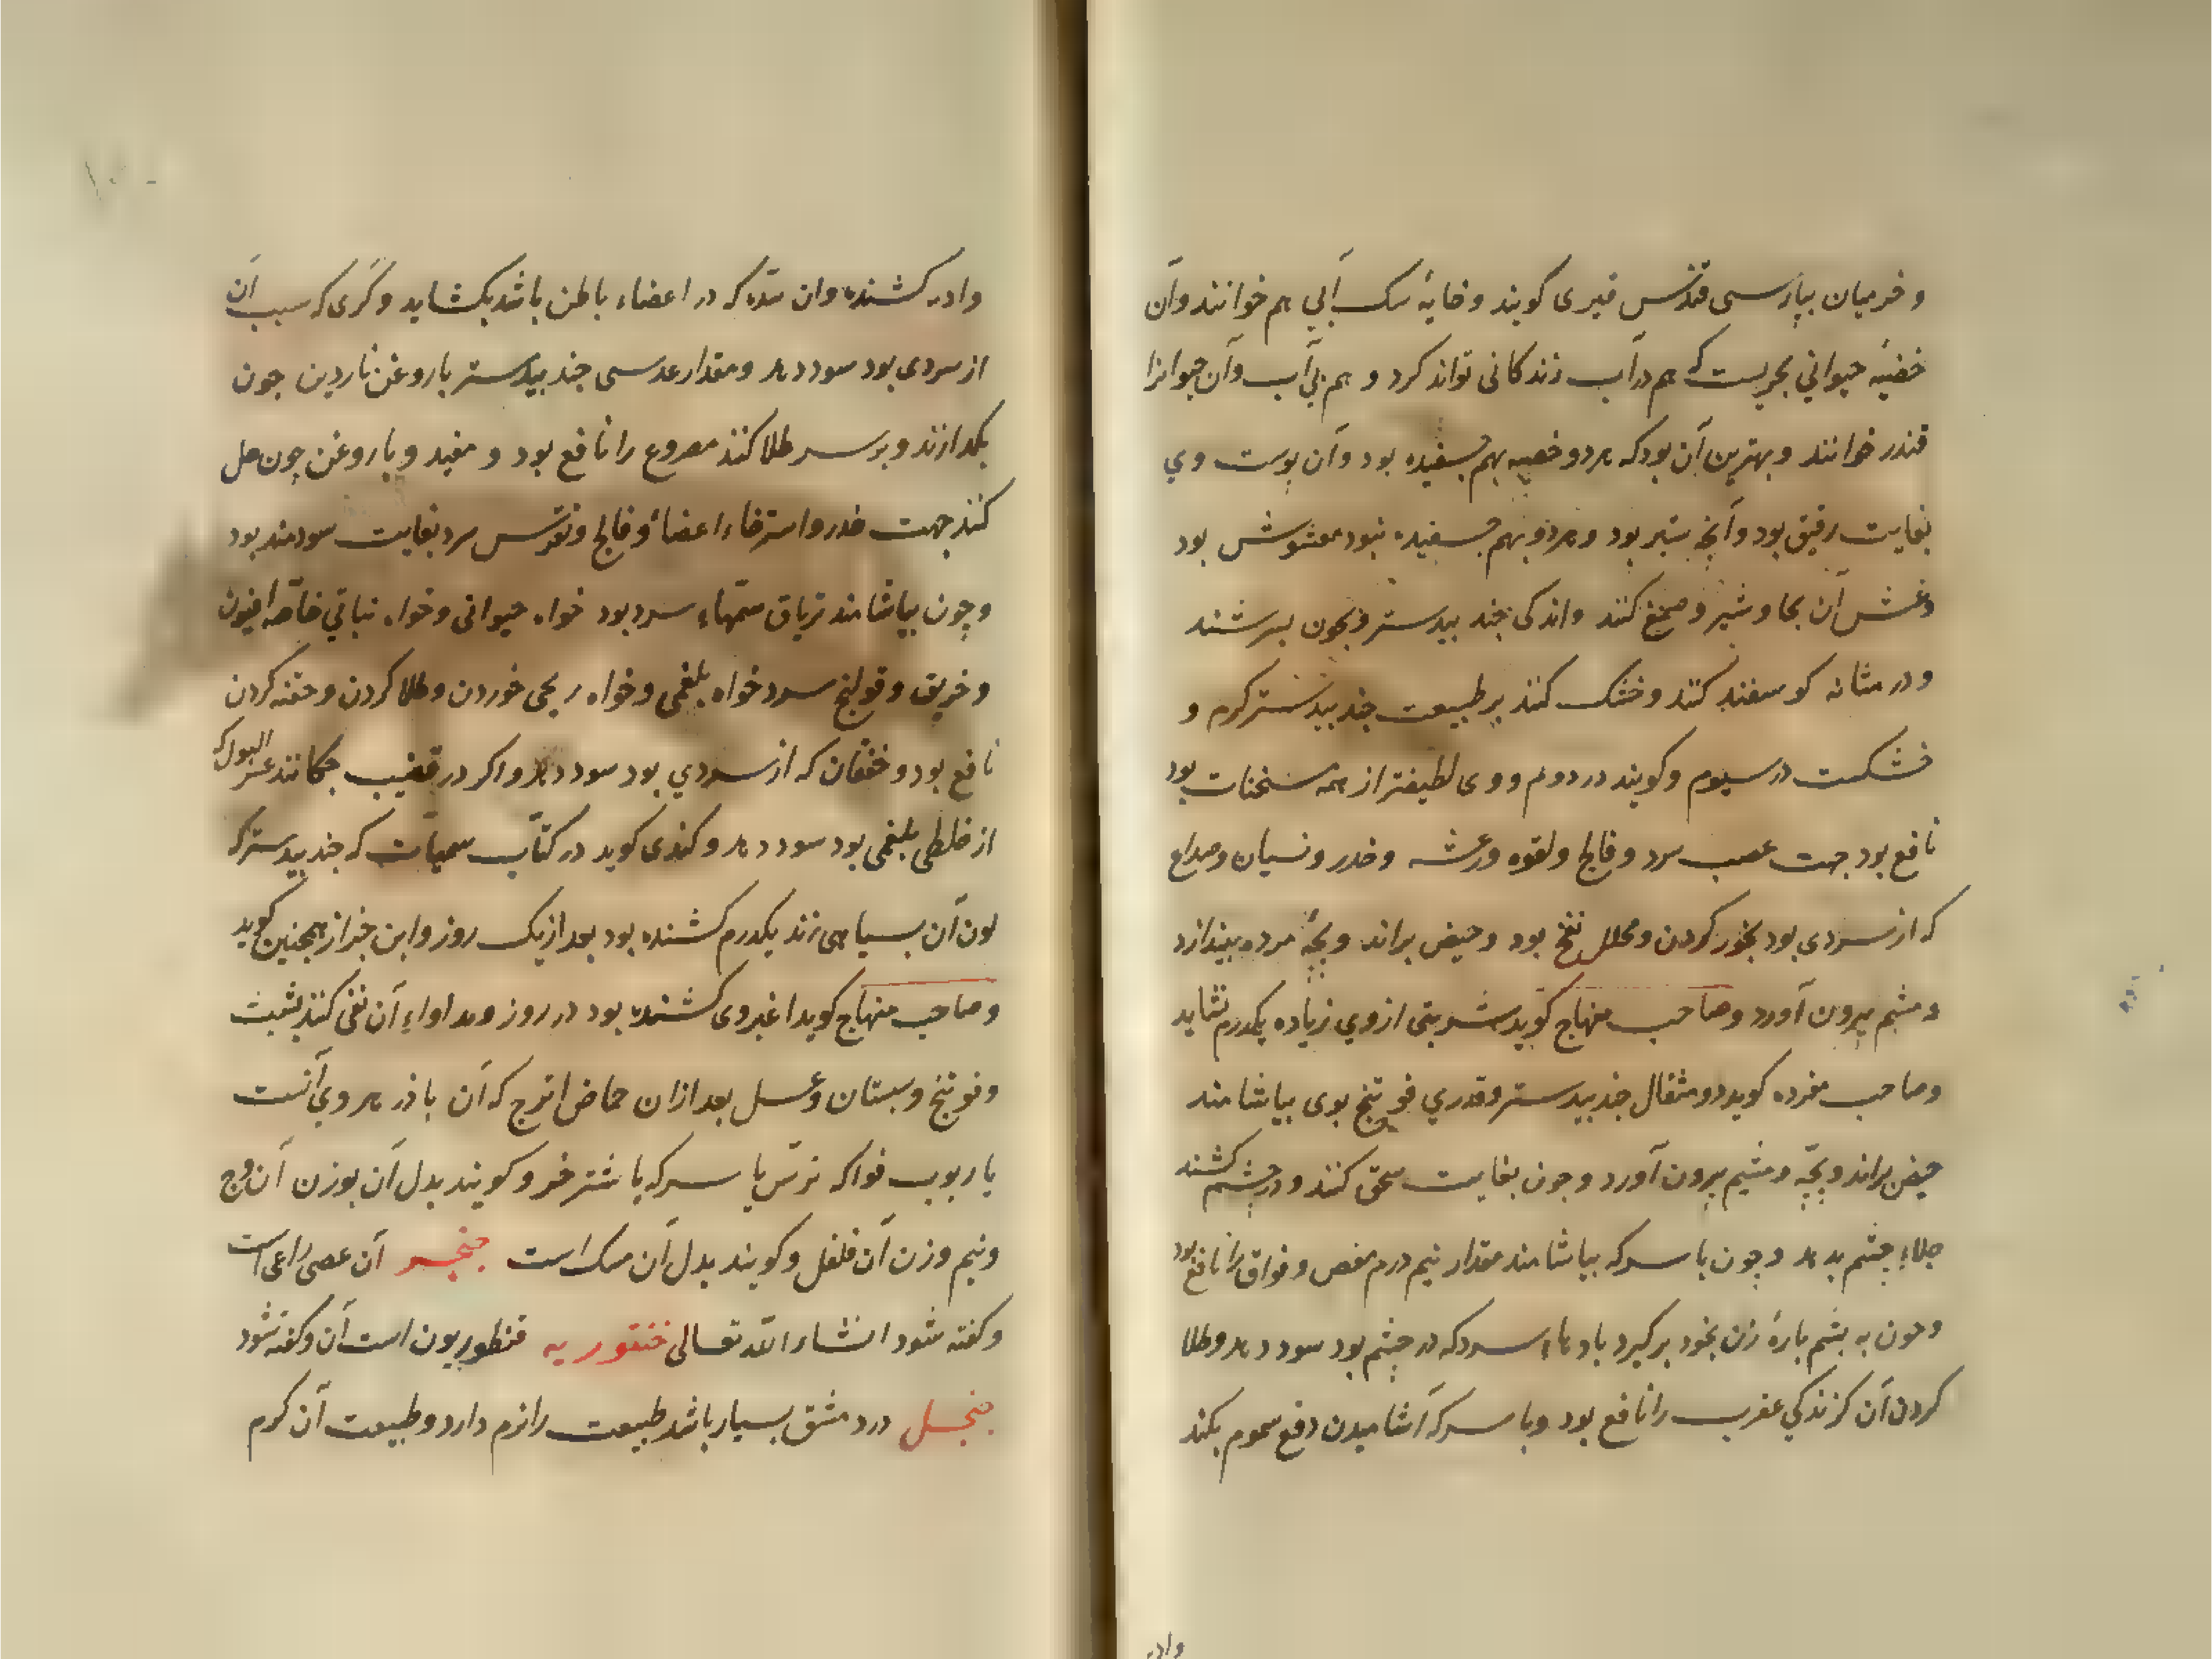 و خرمیان بپارسی قندس قیری کویند و خایهٔ سک آبی هم خوانند و آن
خصیهٔ حیوانی بحریست که هم در آب زندکانی تواند کرد و هم بی آب و آن حیوانرا
قندر خوانند و بهترین آن بود که هر دو خصیه بهم چسفیده بود و آن پوست وی
بغایت رقیق بود و آنچه ستبر بود و هر دو بهم چسفیده نبود مغشوش بود
و غش آن بجاوشیر و صمغ کنند و اندکی جند بیدستر و بخون بسرشند
و در مثانه کوسفند کنند و خشک کنند طبیعت جند بیدستر کرم و
خشکست در سیوم و کویند در دوم و وی لطیفتر از همه مسخنات بود
نافع بود جهت عصب سرد و فالج و لقوه و رعشه و خدر و نسیان و صداع
که از سردی بود بخور کردن و محلل نفخ بود و حیض براند و بچهٔ مرده بیندازد
و مشیم بیرون آورد و صاحب منهاج کوید شربتی از وی زیاده یکدرم نشاید
و صاحب مفرده کوید دو مثقال جند بیدستر و قدری فوتنج بوی بیاشامند
حیض براند و بچّه و مشیم بیرون آورد و چون بغایت سحق کنند و در چشم کشند
جلاءِ چشم بدهد و چون با سرکه بیاشامند مقدار نیم درم مغص و فواق را نافع بود
و چون به پشم پارهٔ زن بخود برکیرد بادهاءِ سرد که در چشم بود سود دهد و طلا
کردن آن کزندکی عقرب را نافع بود و با سرکه آشامیدن دفع سموم بکند
وادویه
وادویه کشنده و آن سدّه که در اعضاء باطن باشد بکشاید و کری که سبب آن
از سردی بود سود دهد و مقدار عدسی جند بیدستر با روغن ناردین چون
بکدازند و بر سر طلا کنند مصروع را نافع بود و مفید و با روغن چون حل
کنند جهت خدر و استرخاء اعضا و فالج و نقرس سرد بغایت سودمند بود
و چون بیاشامند تریاق سمّهاءِ سرد بود خواه حیوانی و خواه نباتی خاصّه افیون
و خربق و قولنج سرد خواه بلغمی و خواه ریحی خوردن و طلا کردن و حقنه کردن
نافع بود و خفقان که از سردی بود سود دهد و اکر در قضیب چکانند عسر البول که
از خلطی بلغمی بود سود دهد و کندی کوید در کتاب سمیّات که جند بیدستر که
لون آن بسیاهی زند یکدرم کشنده بود بعد از یک روز و ابن جزار همچنین کوید
و صاحب منهاج کوید اغبر وی کشنده بود در روز و مداواءِ آن نقی کنند بشبت
و فوتنج و سبستان و عسل بعد از آن حماض اترج که آن بازهر وی آنست
یا ربوب فواکه ترش یا سرکه یا شتر خر و کویند بدل آن بوزن آن وج
و نیم وزن آن فلفل و کویند بدل آن مسک است جنجر آن عصی راعی است
و کفته شود انشاء الله تعالی خنتوریه قنطوریون است آن و کفته شود
جنجل در دمشق بسیار باشد طبیعت را نرم دارد و طبیعت آن کرم